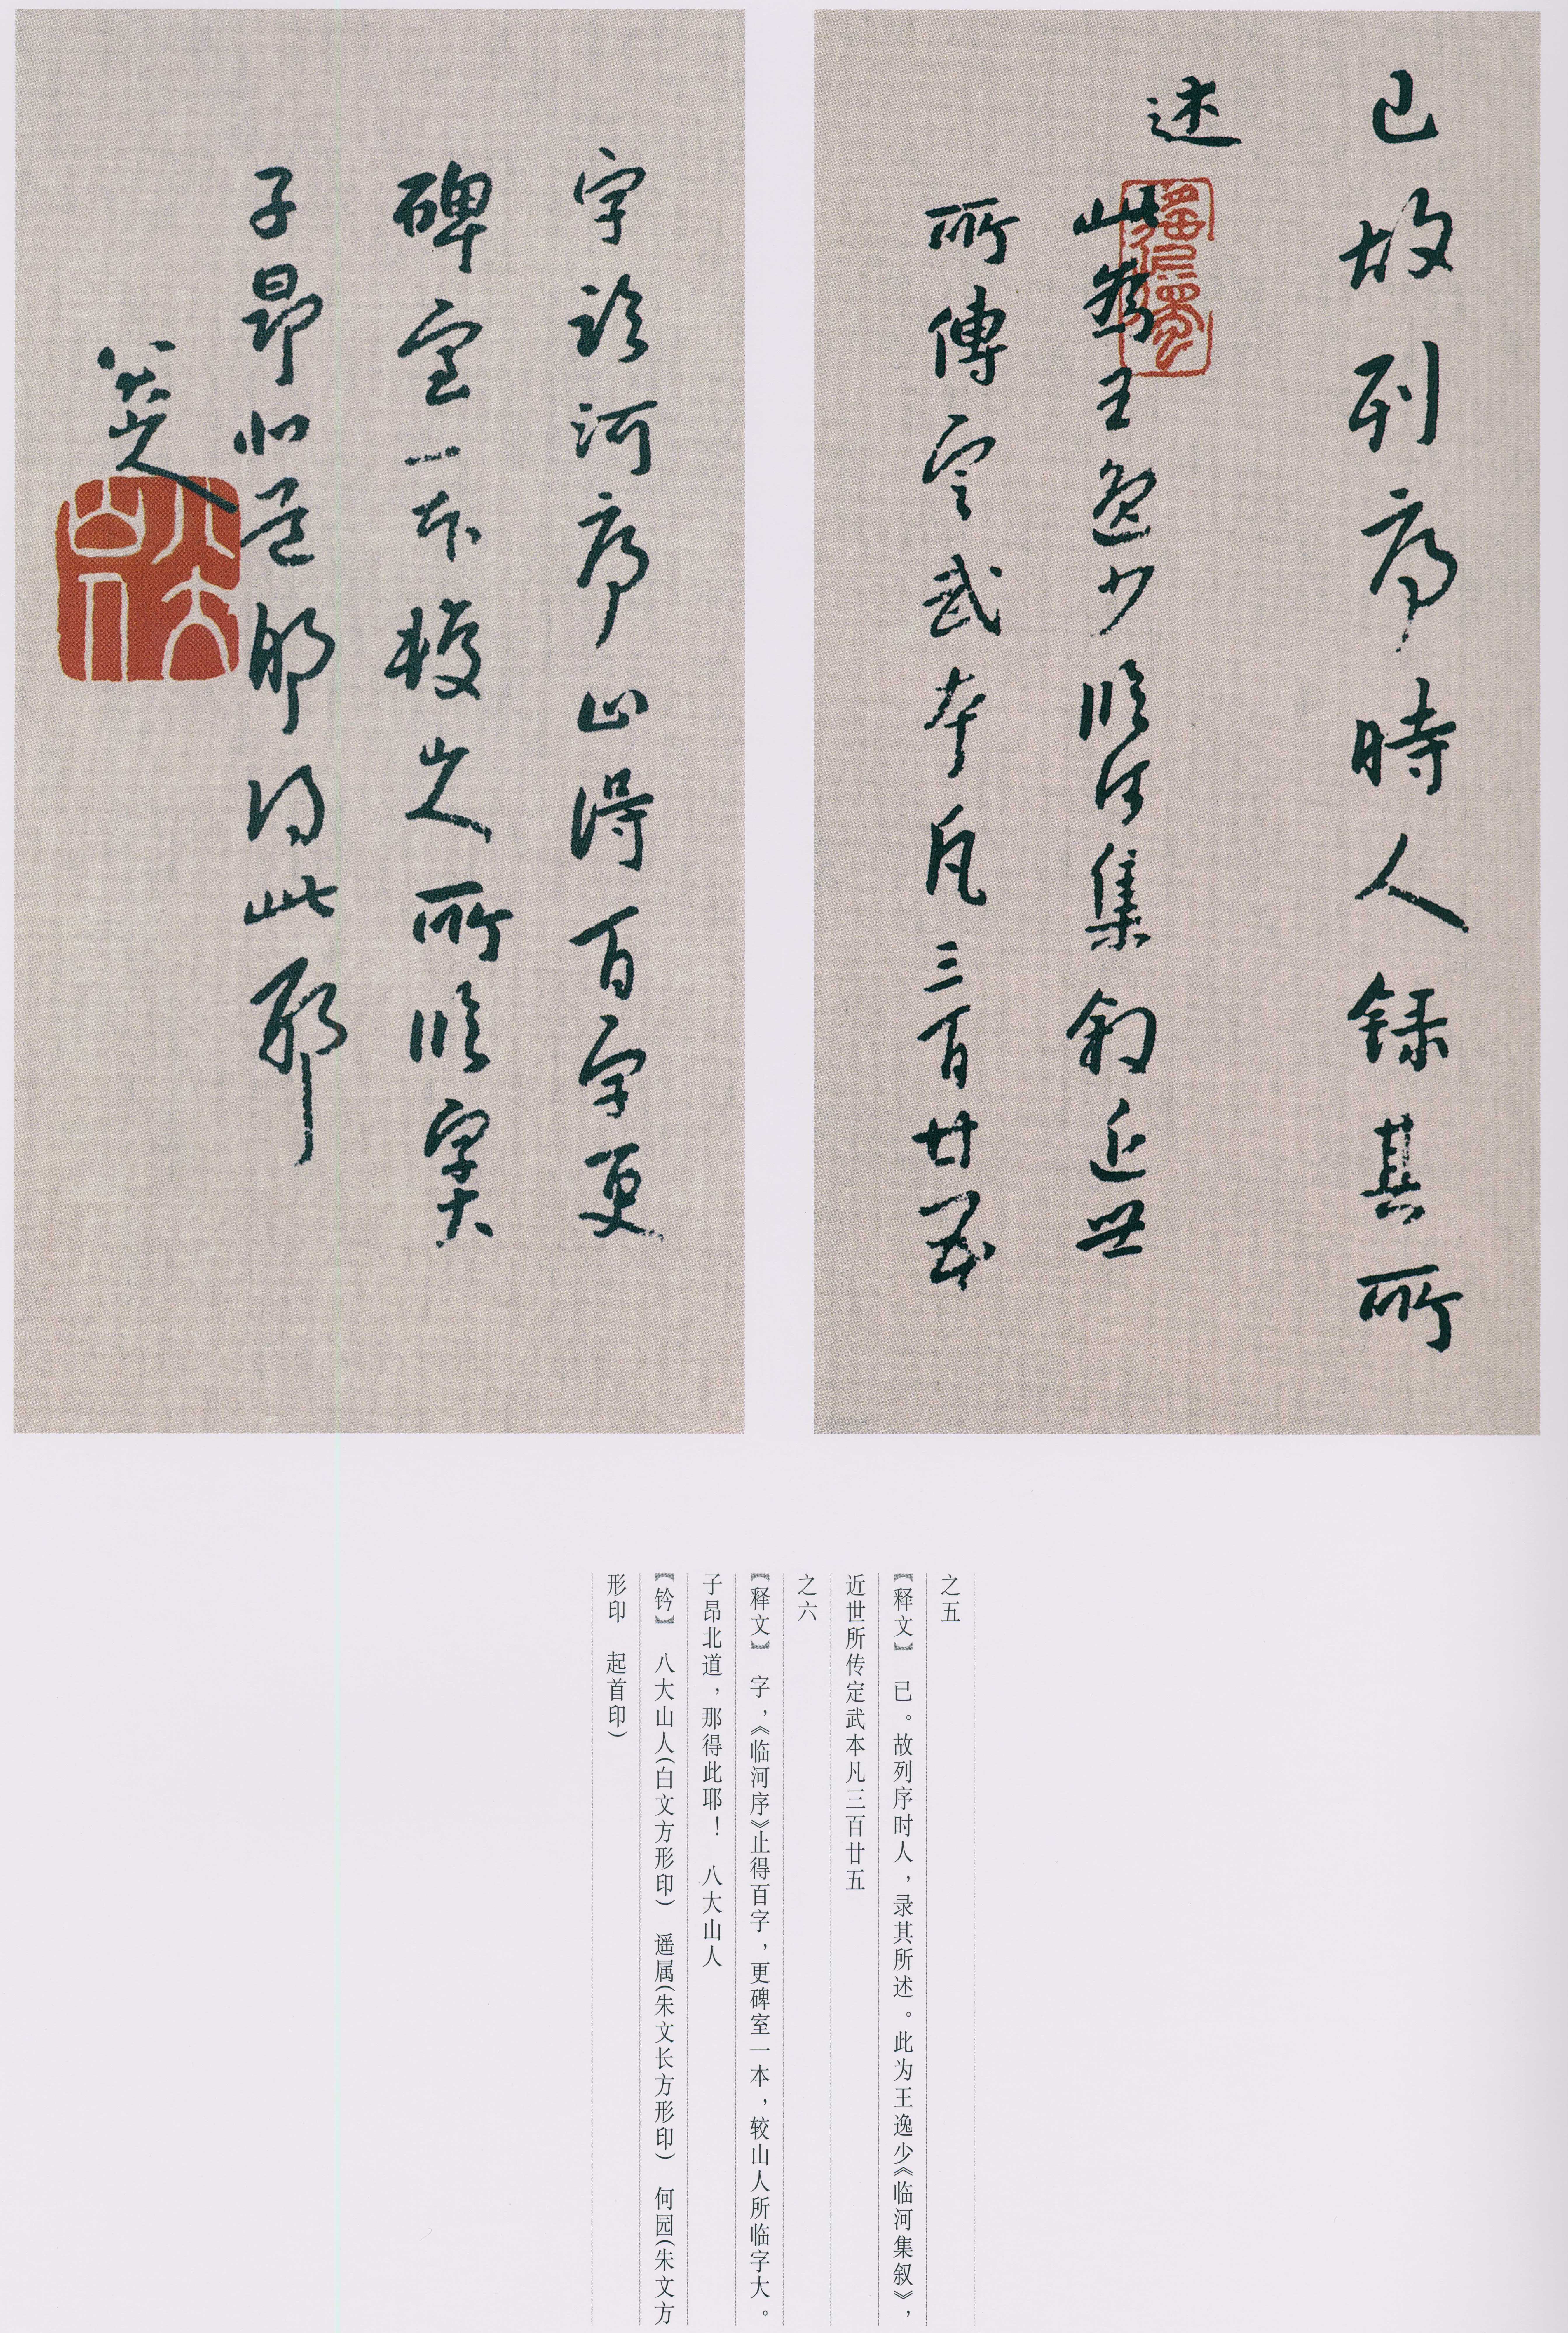 已故列序時人録其所
述
此為王逸少臨河集叙近世
所傳定武本凡三百廿五
字臨河序止得百字更
碑室一本較山人所臨字大
子昂北道那得此耶
八大山人
八大山人
之五
【释文】 已。故列序时人，录其所述。此为王逸少《临河集叙》，
近世所传定武本凡三百廿五
之六
【释文】 字，《临河序》止得百字，更碑室一本，较山人所临字大。
子昂北道，那得此耶！ 八大山人
【钤】 八大山人(白文方形印) 遥属(朱文长方形印) 何园(朱文方
形印 起首印)